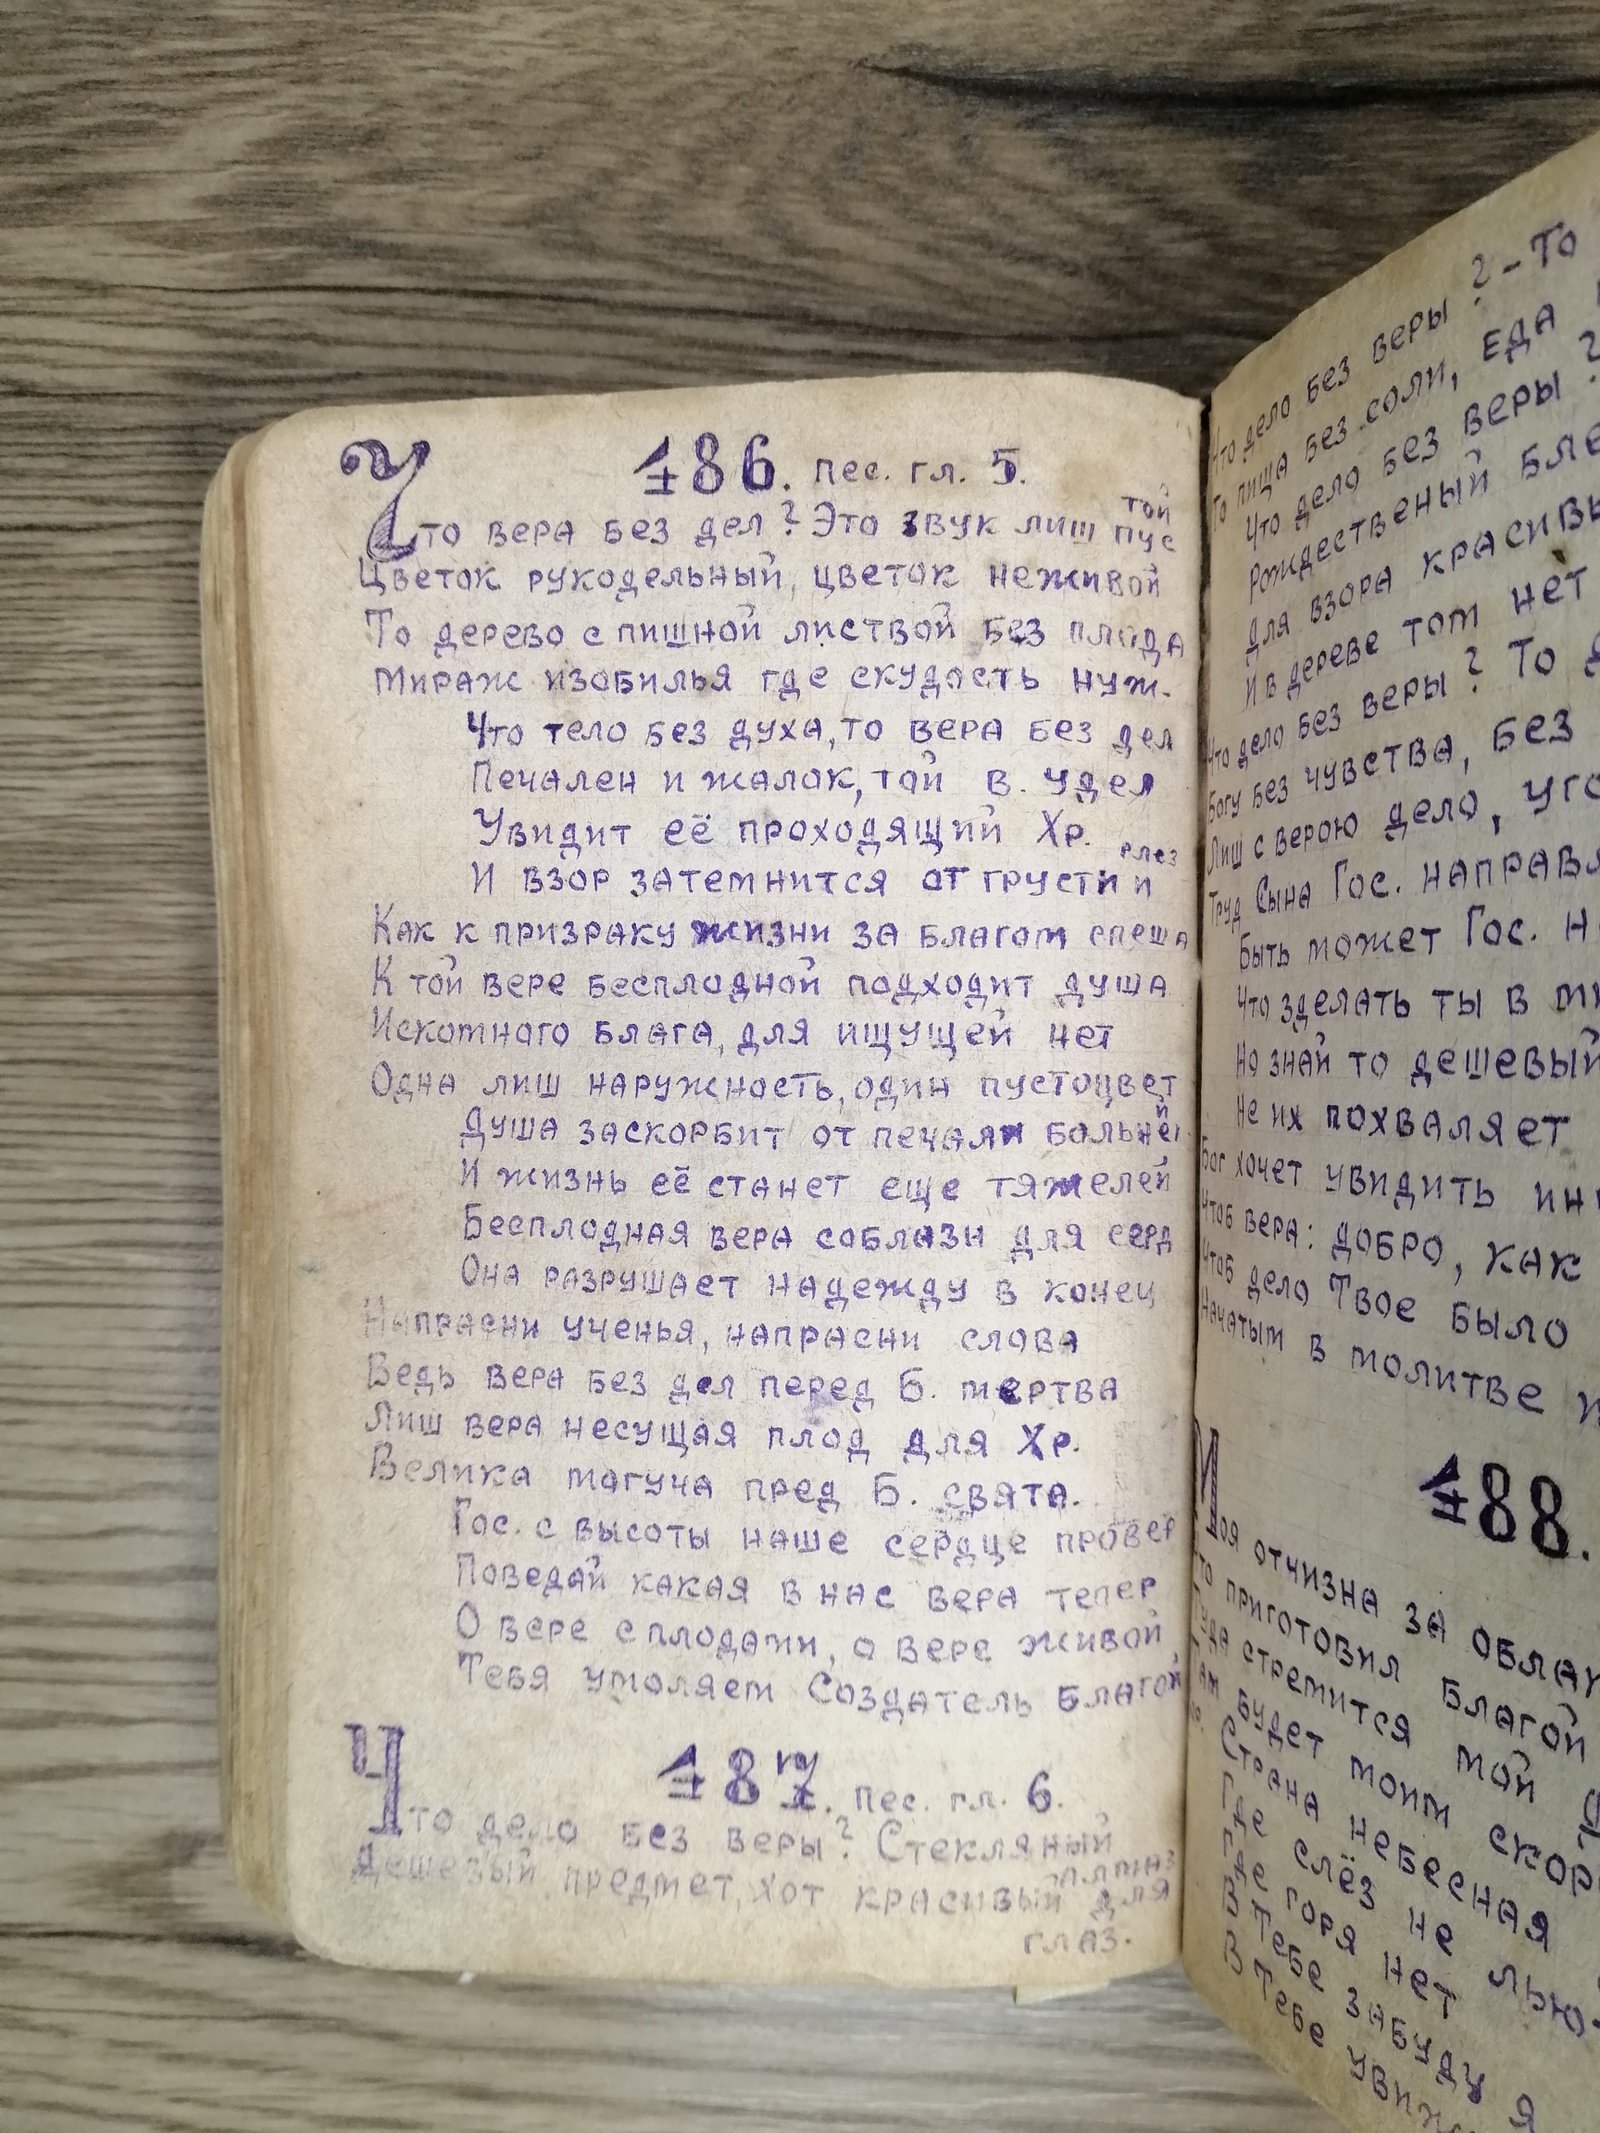 186. пес. гл. 5.
Что вера без дел? Это звук лиш пустой
Цветок рукодельный, цветок неживой
То дерево с пишной листвой без плода
Мираж изобилья где скудость нуж.
Что тело без духа, то вера без дел
Печален и жалок, той в. удел
Увидит её проходящий Хр.
И взор затемнится от грусти и слез
Как к призраку жизни за благом спеша
К той вере бесплодной подходит душа
Искомного блага, для ищущей нет
Одна лиш наружность, один пустоцвет
Душа заскорбит от печали больней
И жизнь её станет еще тяжелей
Бесплодная вера соблазн для серд
Она разрушает надежду в конец
Напрасни ученья, напрасни слова
Ведь вера без дел перед Б. мертва
Лиш вера несущая плод для Хр.
Велика могуча пред Б. свята.
Гос. с высоты наше сердце провер
Поведай какая в нас вера тепер
О вере с плодами, о вере живой
Тебя умоляем Создатель благой
187. пес. гл. 6.
Что дело без веры? Стекляный алмаз
Дешевый предмет, хот красивый для
глаз.
Что дело без веры? - То
То пища без соли, еда
Что дело без веры?
Рождественый
Для взора
И в дереве том нет
Что дело без веры? То
Богу без чувства, без
Лиш с верою дело,
Труд Сына Гос.
Быть может Гос.
Что зделать ты в
Но знай то дешевый
Не их похваляет
Бог хочет увидить
Чтоб вера: добро, как
Чтоб дело Твое было
Начатым в молитве
188.
Моя отчизна за
приготовил благой
стремится мой
Там будет моим
Страна небесная
Где слёз не
Где горя нет
В Тебе забуду я
В Тебе